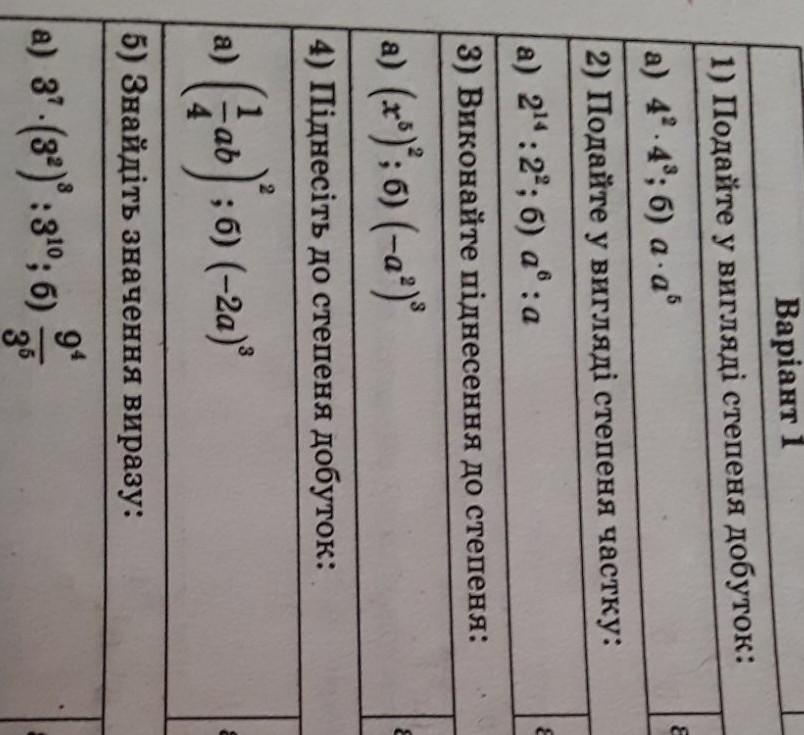 Варіант 1
1) Подайте у вигляді степеня добуток:
а) 4² · 4³; б) a · a⁵
2) Подайте у вигляді степеня частку:
а) 2¹⁴ : 2²; б) a⁶ : a
3) Виконайте піднесення до степеня:
а) (x⁵)²; б) (−a²)³
4) Піднесіть до степеня добуток:
а) (1/4 ab)²; б) (−2a)³
5) Знайдіть значення виразу:
а) 3⁷ · (3²)³ : 3¹⁰; б) 9⁴/3⁵